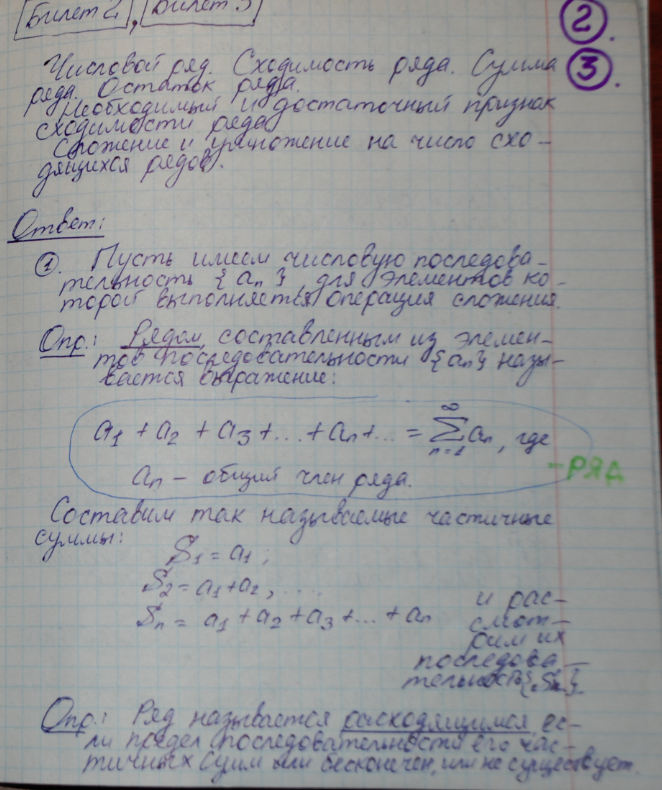 Билет 2, Билет 3
2.
3.
Числовой ряд. Сходимость ряда. Сумма
ряда. Остаток ряда.
Необходимый и достаточный признак
сходимости ряда
Сложение и умножение на число схо-
дящихся рядов.
Ответ:
1. Пусть имеем числовую последова-
тельность {aₙ}, для элементов ко-
торой выполняется операция сложения.
Опр.: Рядом, составленным из элемен-
тов последовательности {aₙ} назы-
вается выражение:
a₁ + a₂ + a₃ + ... + aₙ + ... = ∞∑n=1 aₙ, где
aₙ – общий член ряда.
- РЯД
Составим так называемые частичные
суммы:
S₁ = a₁;
S₂ = a₁ + a₂, ....
Sₙ = a₁ + a₂ + a₃ + ... + aₙ
и рас-
смот-
рим их
последова-
тельность {Sₙ}.
Опр.: Ряд называется расходящимся, ес-
ли предел последовательности его час-
тичных сумм или бесконечен, или не существует.